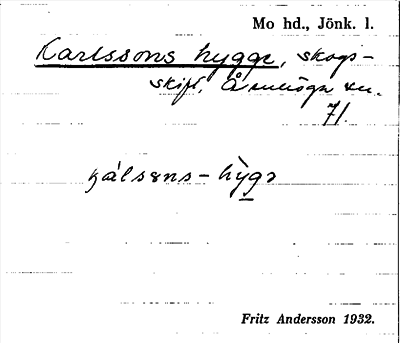 Mo hd., Jönk. l.
Karlssons hygge, skogs-
skift, Åmhöga en.
71
kálsens - hỳgə
Fritz Andersson 1932.